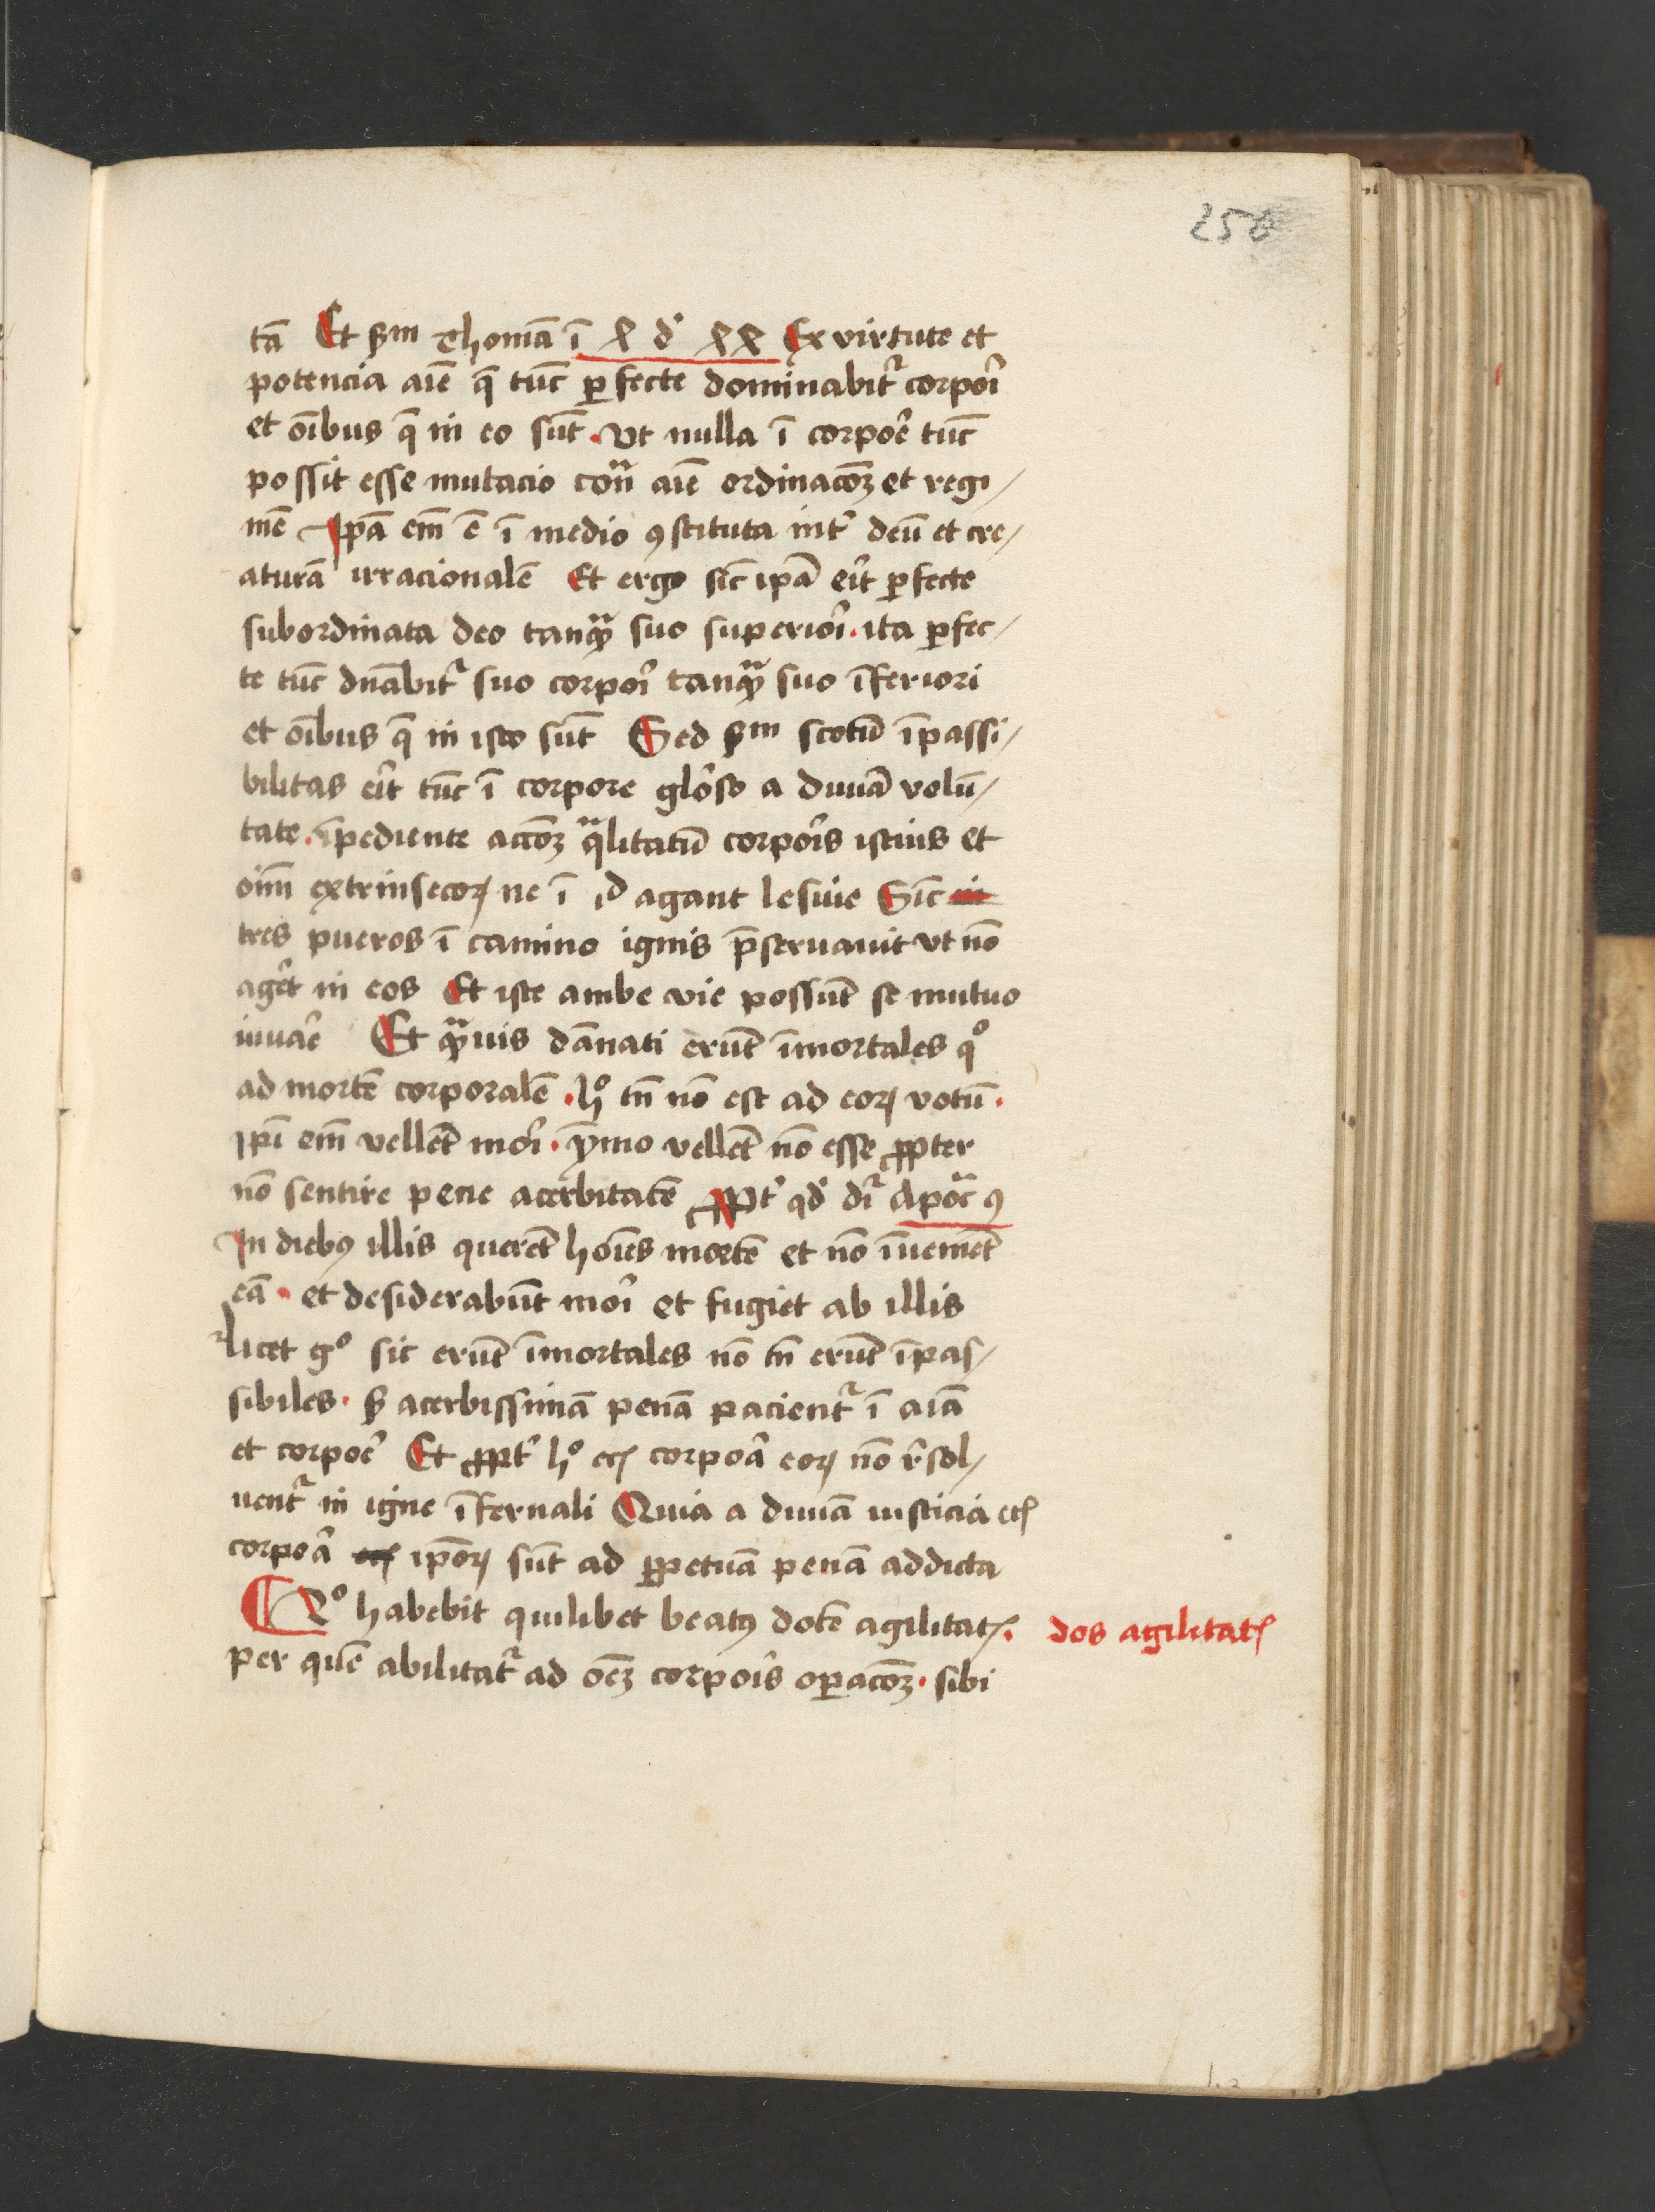 256
tā Et ẜm Thomā ī x d' xx Ex virtute et
potencia aīe q̄ tūc ꝑfecte dominabit᷑ corpoꝛ̄i
et oībus q̄ in eo sūt . vt nulla ī corpoē tūc
possit esse mutacio cont̄ aīe ordinacōꝫ et regi/
mē Ipā em̄ ē ī medio ꝯstituta int̄ deū et cre/
aturā irracionalē Et ergo sic̄ ipā erīt ꝑfecte
subordinata deo tanꝙ̄ suo superioī . ita ꝑfec/
te tūc dn̄abit᷑ suo corpoī tanꝙ̄ suo īferiori
et oībus q̄ in isto sūt Sed ẜm scotū īpassi/
bilitas erīt tūc ī corpore glōso a diuīa volū/
tate . īpediente accōꝫ q̄litatū corpoīs istius et
oīm extrinsecoꝝ ne ī id agant lesiue Sic̄
tres pueros ī camino ignis p̄seruauit vt nō
agēt in eos Et iste ambe vie possūt se mutuo
iuuaē Et ꝙ̄uis dānati erūt īmortales qͦ
ad mortē corporalē . hͦ tn̄ nō est ad eoꝝ votū .
ip̄i em̄ vellēt moī . ymo vellēt nō esse ꝓpter
nō sentire pene acerbitatē ꝓpt̄ qd̓ dī᷑ Apoc̄ 9
In diebꝰ illis querēt hoīes mortē et nō īueniēt
eā . et desiderabūt moī et fugiet ab illis
licet gͦ sic erūt īmortales nō tn̄ erūt īpas/
sibiles . ẜ acerbissimā penā pacient᷑ ī aīa
et corpoē Et ꝓpt̄ hͦ ecꝭ corpoā eoꝝ nō r̄sol/
uent᷑ in igne īfernali Quia a diuīa iusticia ecꝭ
corpoā ip̄oꝝ sūt ad ꝑpetuā penā addicta
¶ 2ͦ habebit quilibet beatꝰ dotē agilitatꝭ .
dos agilitatꝭ
per quē abilitat᷑ ad oēꝫ corpoīs oꝑacōꝫ . sibi